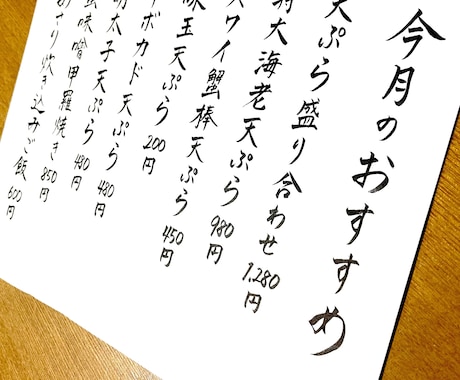 今月のおすすめ
天ぷら盛り合わせ 1,280円
大海老天ぷら 980円
ワイ蟹棒天ぷら 450円
味玉天ぷら 200円
ボカド天ぷら 480円
明太子天ぷら 480円
味噌甲羅焼き 850円
あさり炊き込みご飯 600円